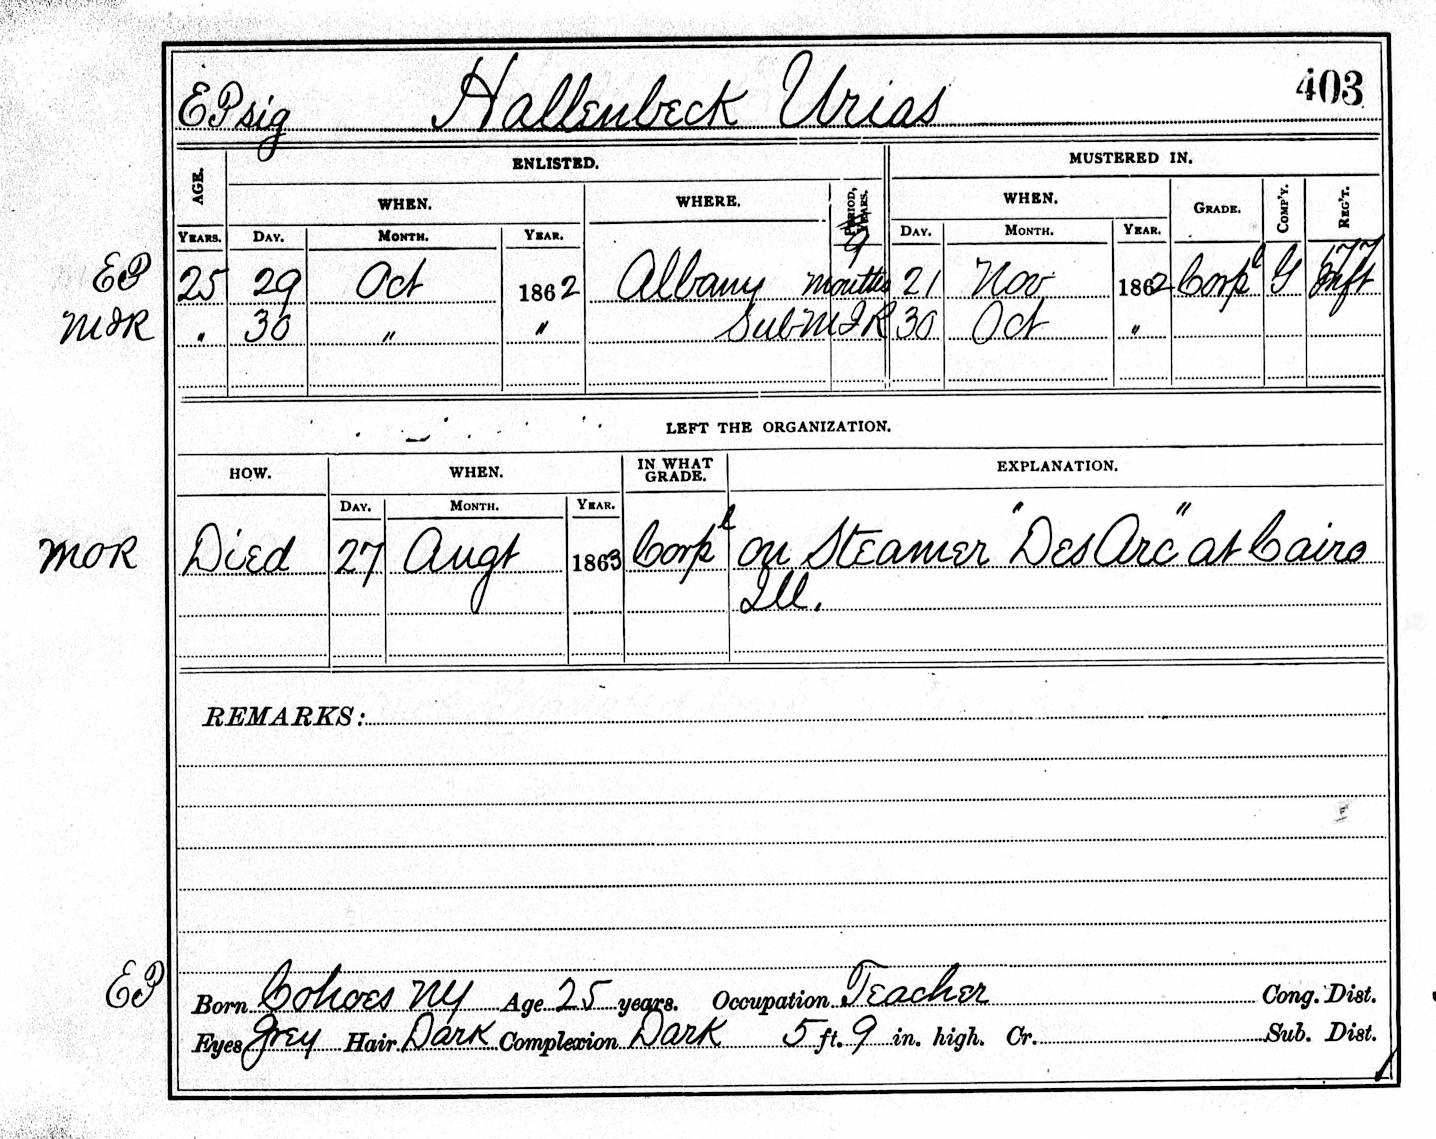 EP sig Hallenbeck Urias 403
ENLISTED. MUSTERED IN.
AGE. WHEN. WHERE. PERIOD, YEARS. WHEN. GRADE. COMP'Y. REG'T.
YEARS. DAY. MONTH. YEAR. DAY. MONTH. YEAR.
EP 25 29 Oct 1862 Albany 9 months 21 Nov 1862 Corpl G 177 Inft
MIR " 30 " " Sub MIR 30 Oct "
LEFT THE ORGANIZATION.
HOW. WHEN. IN WHAT GRADE. EXPLANATION.
DAY. MONTH. YEAR.
MOR Died 27 Augt 1863 Corpl on Steamer "Des Arc" at Cairo
Ill.
REMARKS:
EP Born Cohoes NY Age 25 years. Occupation Teacher Cong. Dist.
Eyes Grey Hair Dark Complexion Dark 5 ft. 9 in. high. Cr. Sub. Dist.